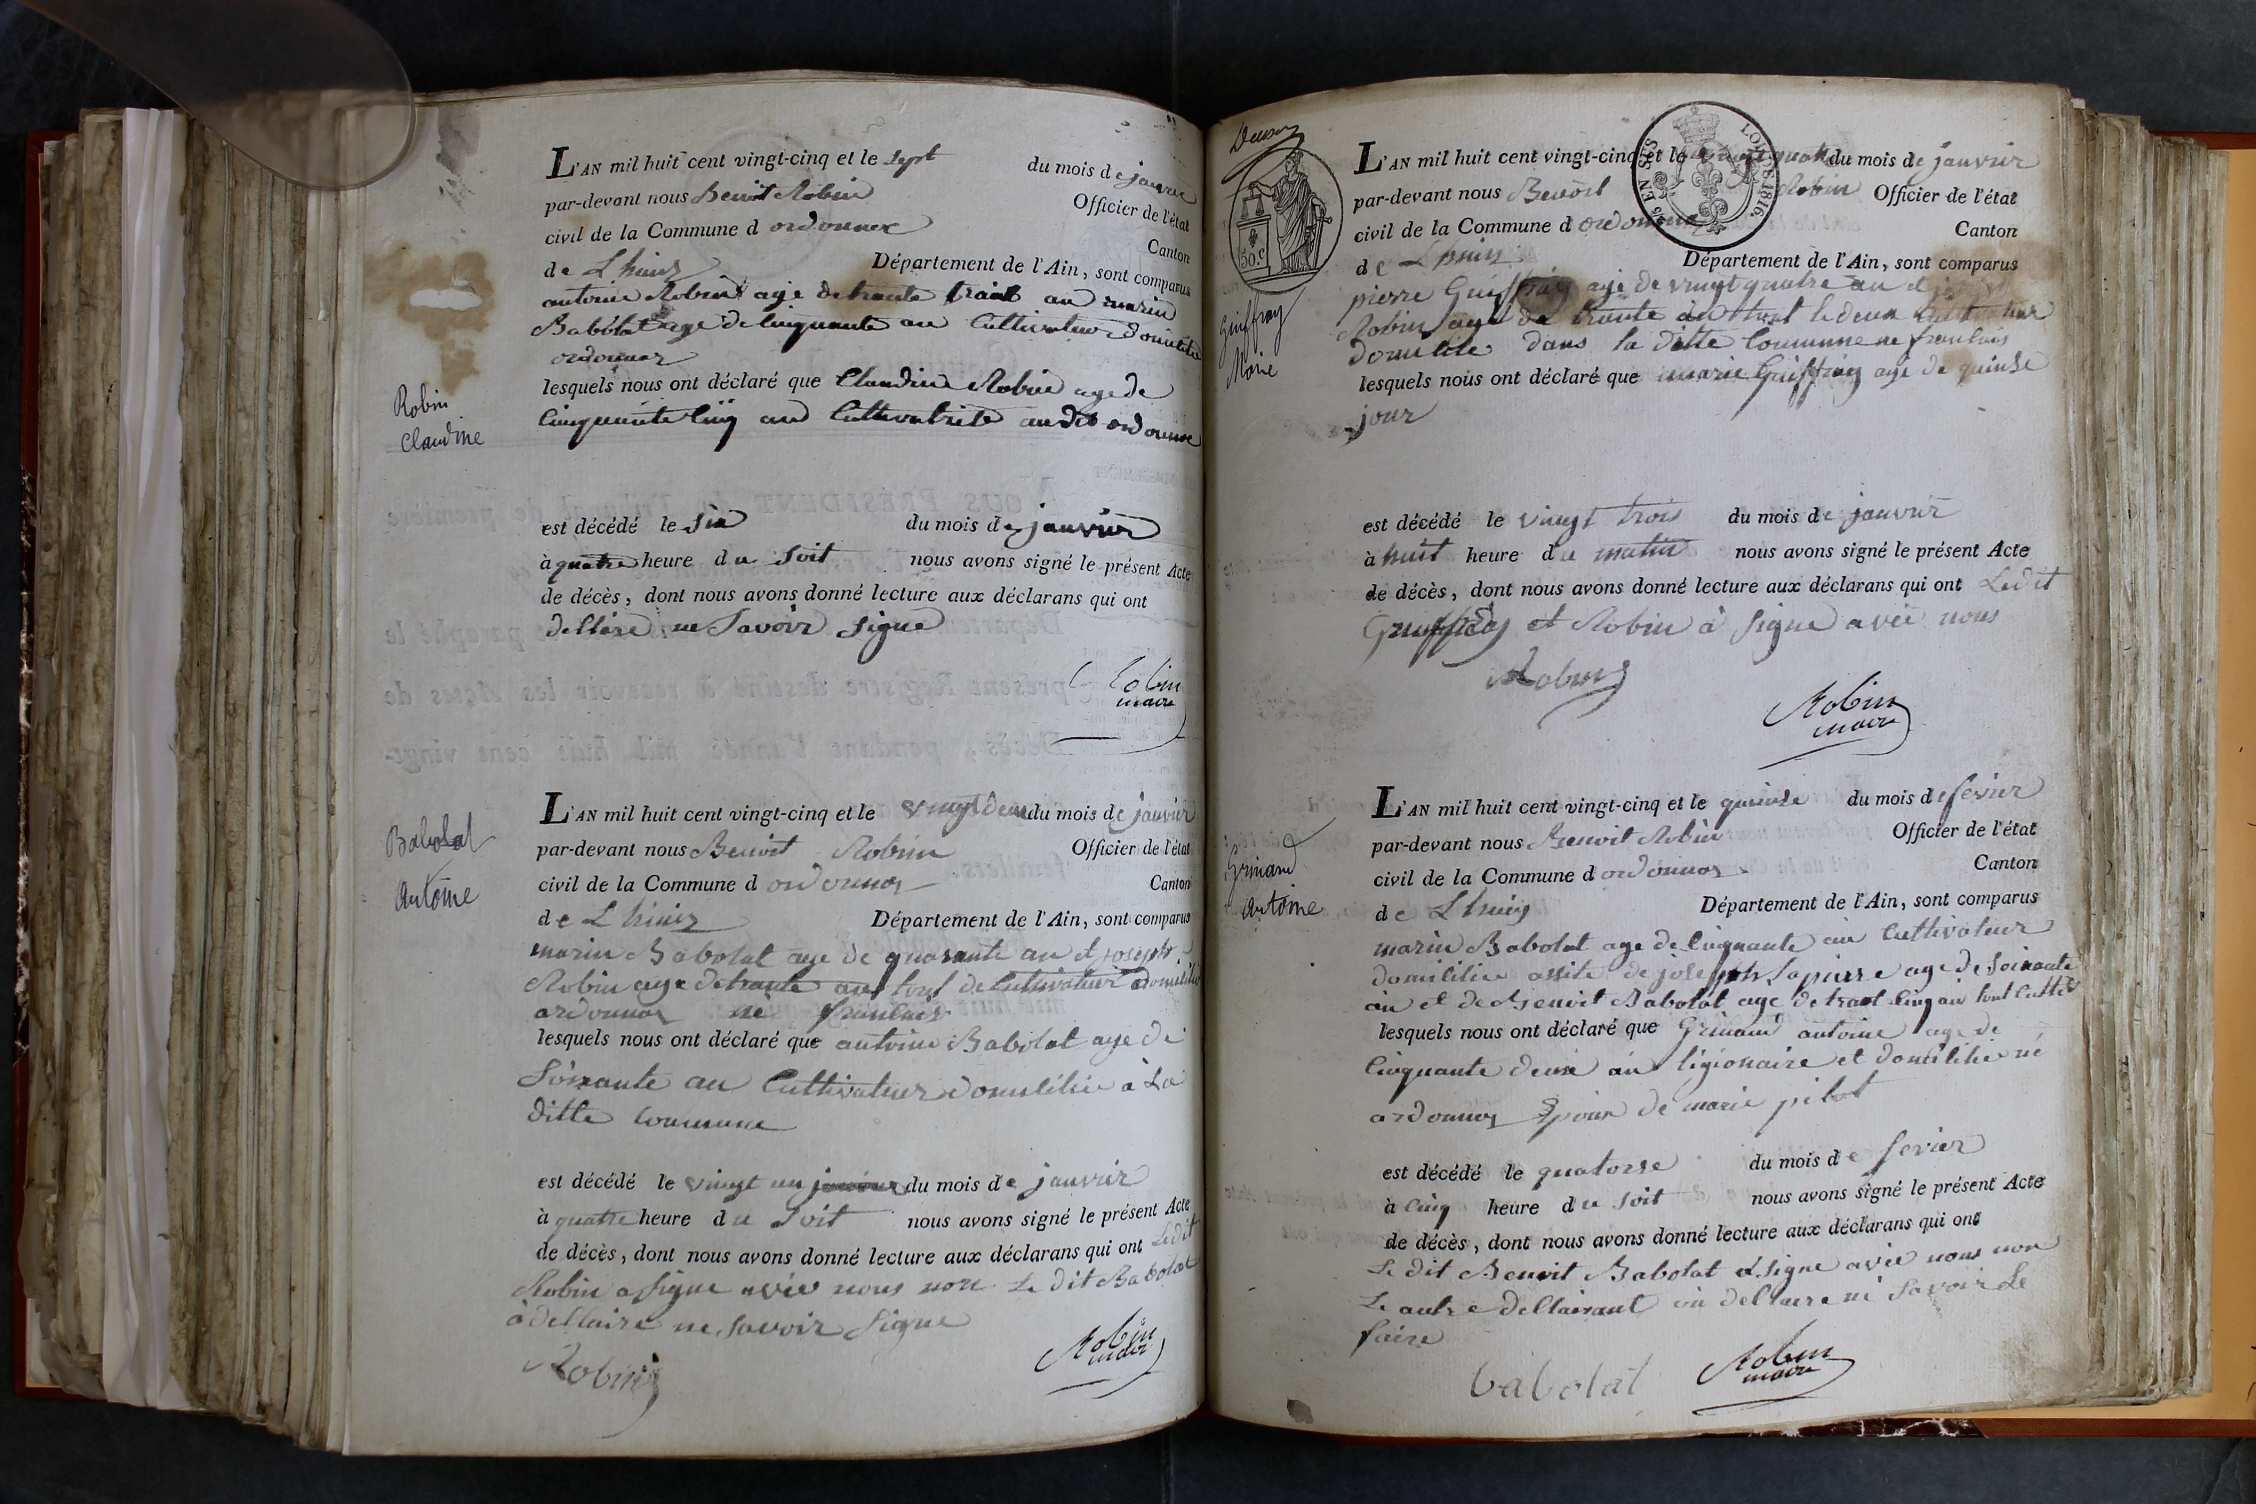 L'AN mil huit cent vingt-cinq et le sept du mois de janvier
par-devant nous Benoit Robin Officier de l'état
civil de la Commune d ordonnax Canton
de Lhuis Département de l'Ain, sont comparus
antoine Robin age de trante an marin
Babolat age de cinquante an Cultivateur domicilie
ordonnaz
Robin
Claudine
lesquels nous ont déclaré que Claudine Robin age de
Cinquante cinq ans Cultivatrise au dit ordonnax
est décédé le six du mois de janvier
à quatre heure du soit nous avons signé le présent Acte
de décès, dont nous avons donné lecture aux déclarans qui ont
dellere ne savoir signe
Robin
maire
Babolat
Antoine
L'AN mil huit cent vingt-cinq et le vingt deux du mois de janvier
par-devant nous Benoit Robin Officier de l'état
civil de la Commune d ordonnaz Canton
de Lhuis Département de l'Ain, sont comparus
marin Babolat age de quarante an et joseph
Robin age de trante an tout de Cultivateur domicilie
ordonnaz ne franlais
lesquels nous ont déclaré que antoine Babolat age de
soixante an Cultivateur domicilie à La
ditte commune
est décédé le vingt un janvier du mois de janvier
à quatre heure du soit nous avons signé le présent Acte
de décès, dont nous avons donné lecture aux déclarans qui ont Ledit
Robin a signe avec nous non Le dit Babolat
à dellaire ne savoir signe
Robin
Robin
maire
30.c
Guiffray
Marie
L'AN mil huit cent vingt-cinq et le vingt quatre du mois de janvier
par-devant nous Benoit Robin Officier de l'état
civil de la Commune d ordonnaz Canton
de Lhuis Département de l'Ain, sont comparus
LOI DE 1816.
EN SUS
pierre Guiffray age de vingt quatre an et
Robin age de trante an tout le deux Cultivateur
domicilie dans la ditte Commune ne franlais
lesquels nous ont déclaré que marie Guiffray age de quinse
jour
est décédé le vingt trois du mois de janvier
à huit heure du matin nous avons signé le présent Acte
de décès, dont nous avons donné lecture aux déclarans qui ont Ledit
Guiffray et Robin à signe avec nous
Robin
Robin
maire
Grinand
Antoine
L'AN mil huit cent vingt-cinq et le quinse du mois de fevrier
par-devant nous Benoit Robin Officier de l'état
civil de la Commune d ordonnaz Canton
de Lhuis Département de l'Ain, sont comparus
marin Babolat age de Cinquante an Cultivateur
domicilie assite de joseph Lapierre age de soixante
an et de Benoit Babolat age de trant cinq an tout Cultiv
lesquels nous ont déclaré que Grinand antoine age de
Cinquante deux an ligionaire et domicilie ne
ordonnaz Epoux de marie pilot
est décédé le quatorse du mois de fevrier
à cinq heure du soit nous avons signé le présent Acte
de décès, dont nous avons donné lecture aux déclarans qui ont
Le dit Benoit Babolat à signe avec nous non
Le autre dellairant on dellaire ne savoir Le
faire
babolat
Robin
maire